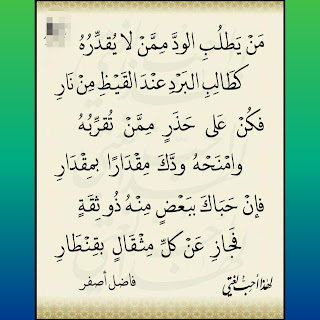 مَنْ يَطلُبِ الودَّ مِمَّنْ لا يُقدِّرُه
كطَالِبِ البَرْدِ عنْدَ القَيْظِ مِنْ نَارِ
فكُنْ عَلى حَذَرٍ مِمَّنْ تُقرِّبُهُ
وامْنَحْهُ ودَّكَ مِقْدَارًا بمِقْدَارِ
فإنْ حَبَاكَ ببَعْضٍ مِنْهُ ذُو ثِقَةٍ
فَجازِ عَنْ كلِّ مِثْقَالٍ بقِنْطَارِ
لهذا أحبُّ لغتي
فاضل أصفر